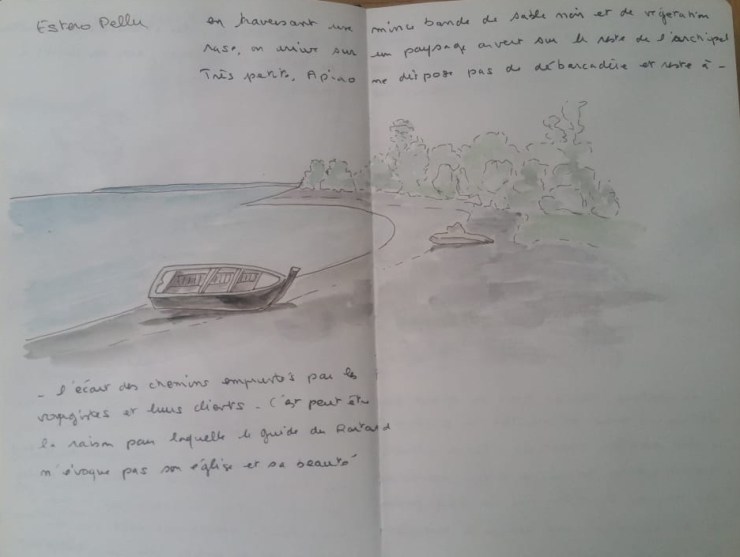 Estero Pellu
en traversant une mince bande de sable noir et de végétation
rase, on arrive sur un paysage ouvert sur le reste de l'archipel
Très petite, Apiao ne dispose pas de débarcadère et reste à -
- l'écart des chemins empruntés par les
voyagistes et leurs clients - C'est peut être
la raison pour laquelle le guide du Routard
n'évoque pas son église et sa beauté